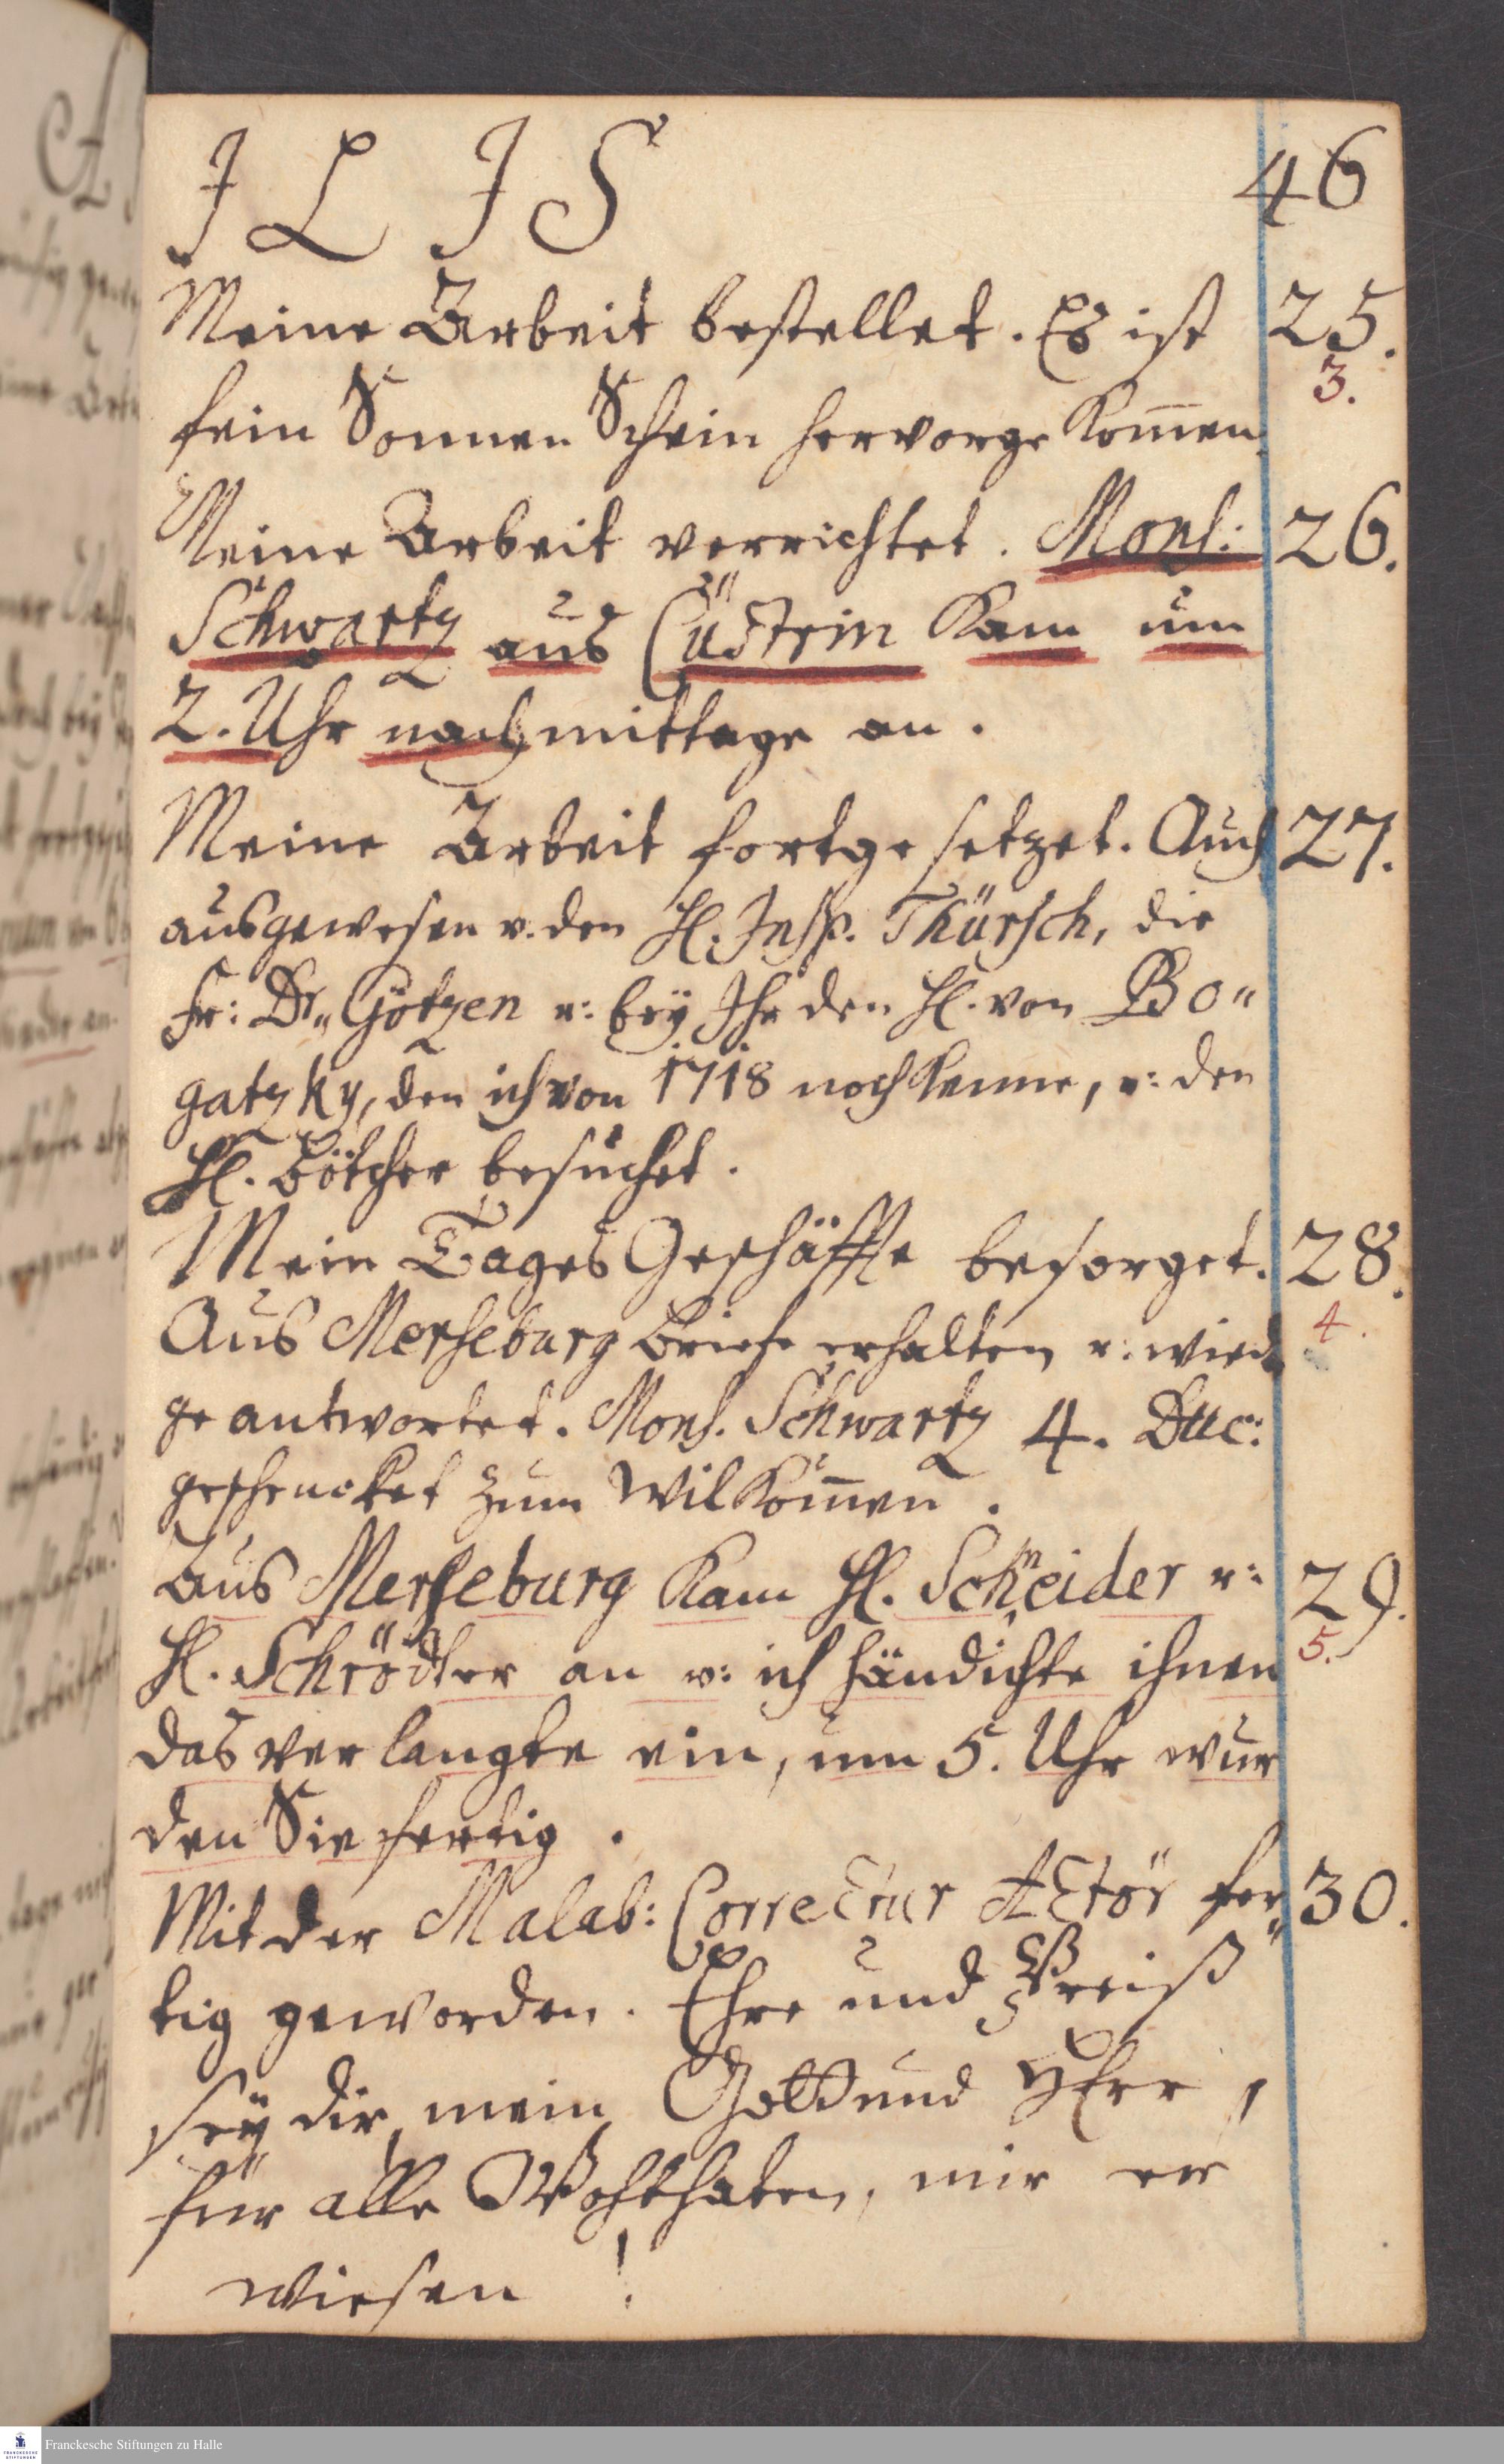 I L I S
46
Meine Arbeit bestellet. Es ist 25.
3.
fein Sonnen Schein hervorge kom̅en.
Meine Arbeit verrichtet. Mons: 26.
Schwartz aus Cüstrin kam um
2. Uhr nachmittage an.
Meine Arbeit fortge setzet. Auch 27.
ausgewesen u. den H. Insp. Thürsch, die
Fr: Dr„ Götzen u: bey Ihr den H. von Bo„
gatzky, den ich von 1718 noch kenne, u: den
H. Bötcher besuchet.
Mein Tages Geschäffte besorget. 28.
Aus Merseburg Briefe erhalten u: wied 4.
ge antwortet. Mons. Schwartz 4. Duc:
geschencket zum Wilkom̅en.
Aus Merseburg kam H. Schneider u: 29.
H. Schrödter an u: ich händichte ihnen 5.
das verlangte ein, um 5. Uhr wur
den Sie fertig.
Mit der Malab: Correctur Actor fer„ 30.
tig geworden. Ehre und Preiß
sey dir, mein Gott und HErr,
für alle Wohlthaten, mir er
wiesen!
Franckesche Stiftungen zu Halle